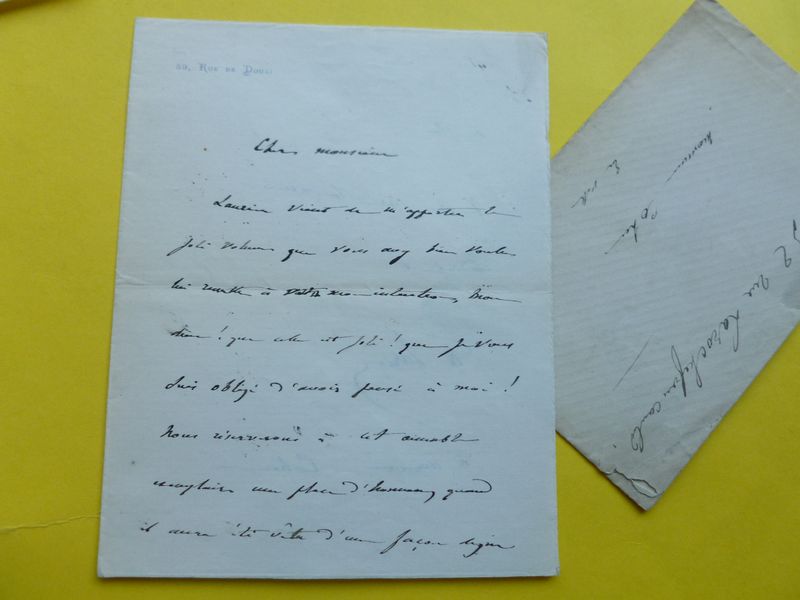 59, Rue de Douai
Cher monsieur
Laurier vient de m'apporter le
joli volume que vous avez bien voulu
lui remettre à mon intention, mon
dieu! que cela est joli! que je vous
suis obligé d'avoir pensé à moi!
Nous réserverons à cet aimable
exemplaire une place d'honneur, quand
il aura été vêtu d'une façon digne
Monsieur
En ville
52 rue Larochefoucauld